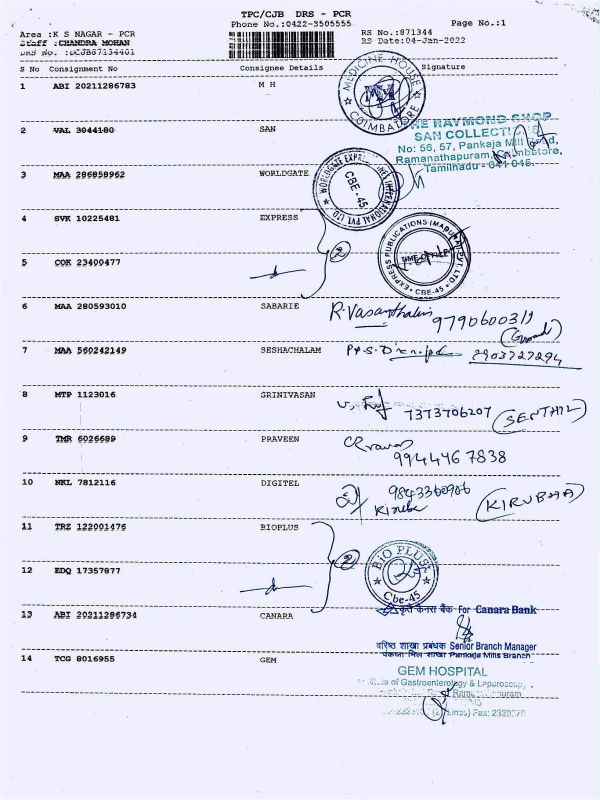 TPC/CJB DRS - PCR
Phone No.:0422-3505555
Page No.:1
Area :K S NAGAR - PCR
RS No.:871344
Staff :CHANDRA MOHAN
RS Date:04-Jan-2022
DRS No. :DCJB87134401
S No Consignment No Consignee Details Signature
1 ABI 20211286783 M H
MEDICINE HOUSE
COIMBATORE
2 VAL 3044180 SAN
THE RAYMOND SHOP
SAN COLLECTIONS
No: 56, 57, Pankaja Mill Road,
Ramanathapuram, Coimbatore,
Tamilnadu - 641 045.
3 MAA 286858962 WORLDGATE
WORLDGATE EXPRESS INTERNATIONAL PVT LTD
CBE - 45
4 SVK 10225481 EXPRESS
2
EXPRESS PUBLICATIONS (MADURAI) PVT. LTD
CBE-45
5 COK 23400477
6 MAA 280593010 SABARIE
R. Vasanthalin
9790600311
7 MAA 560242149 SESHACHALAM
2903727294
8 MTP 1123016 SRINIVASAN
7373706207 (SENTHIL)
9 TMR 6026689 PRAVEEN
9944467838
10 NKL 7812116 DIGITEL
9843360906
Kiruba
(KIRUBHA)
11 TRZ 122001476 BIOPLUS
2
BIO PLUS
Cbe-45
12 EDQ 17357877
13 ABI 20211296734 CANARA
कृते केनरा बैंक For Canara Bank
वरिष्ठ शाखा प्रबंधक Senior Branch Manager
पंकजा मिल शाखा Pankaja Mills Branch
14 TCG 8016955 GEM
GEM HOSPITAL
of Gastroenterology & Laparoscopy,